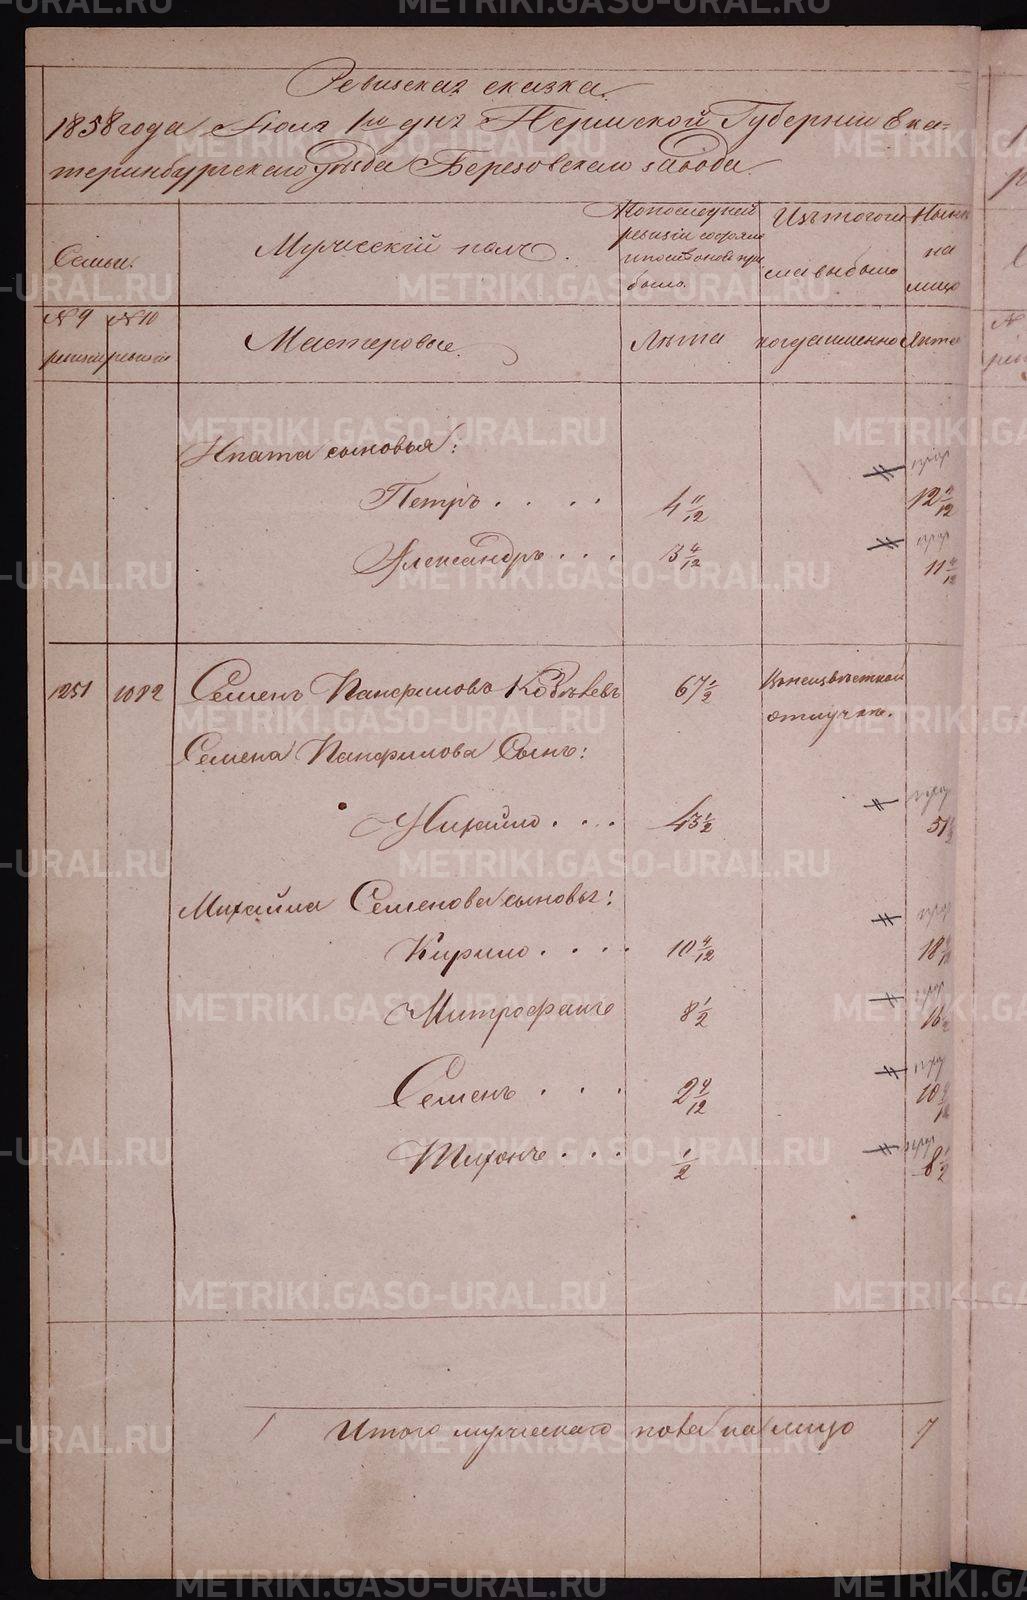 Ревизская сказка.
1858 года Июля 1го дня Пермской Губернии Ека=
теринбургскаго уезда Березовскаго завода.
Семьи.
Мужескій полъ.
По последней ревизіи состояло и после оной прибыло.
Изъ того числа выбыло
Ныне на лицо
№ 9 ревизіи
№ 10 ревизіи
Мастеровые.
Лѣта
когда именно
Лѣта
Ипата сыновья:
Петръ . . . . 4 11/12 12 11/12
Александръ . . . 3 4/12 11 4/12
1251 1082 Семенъ Панфиловъ 67 1/2 Въ неизвѣстной
отлучке.
Семена Панфилова Сынъ:
Михайло . . . 43 1/2 51 1/2
Михайла Семенова сыновья:
Кирило . . . . 10 4/12 18 4/12
Митрофанъ 8 1/2 16 1/2
Семенъ . . . 2 4/12 10 4/12
Тихонъ . . . 1/2 8 1/2
Итого мужескаго пола на лицо 7
METRIKI.GASO-URAL.RU